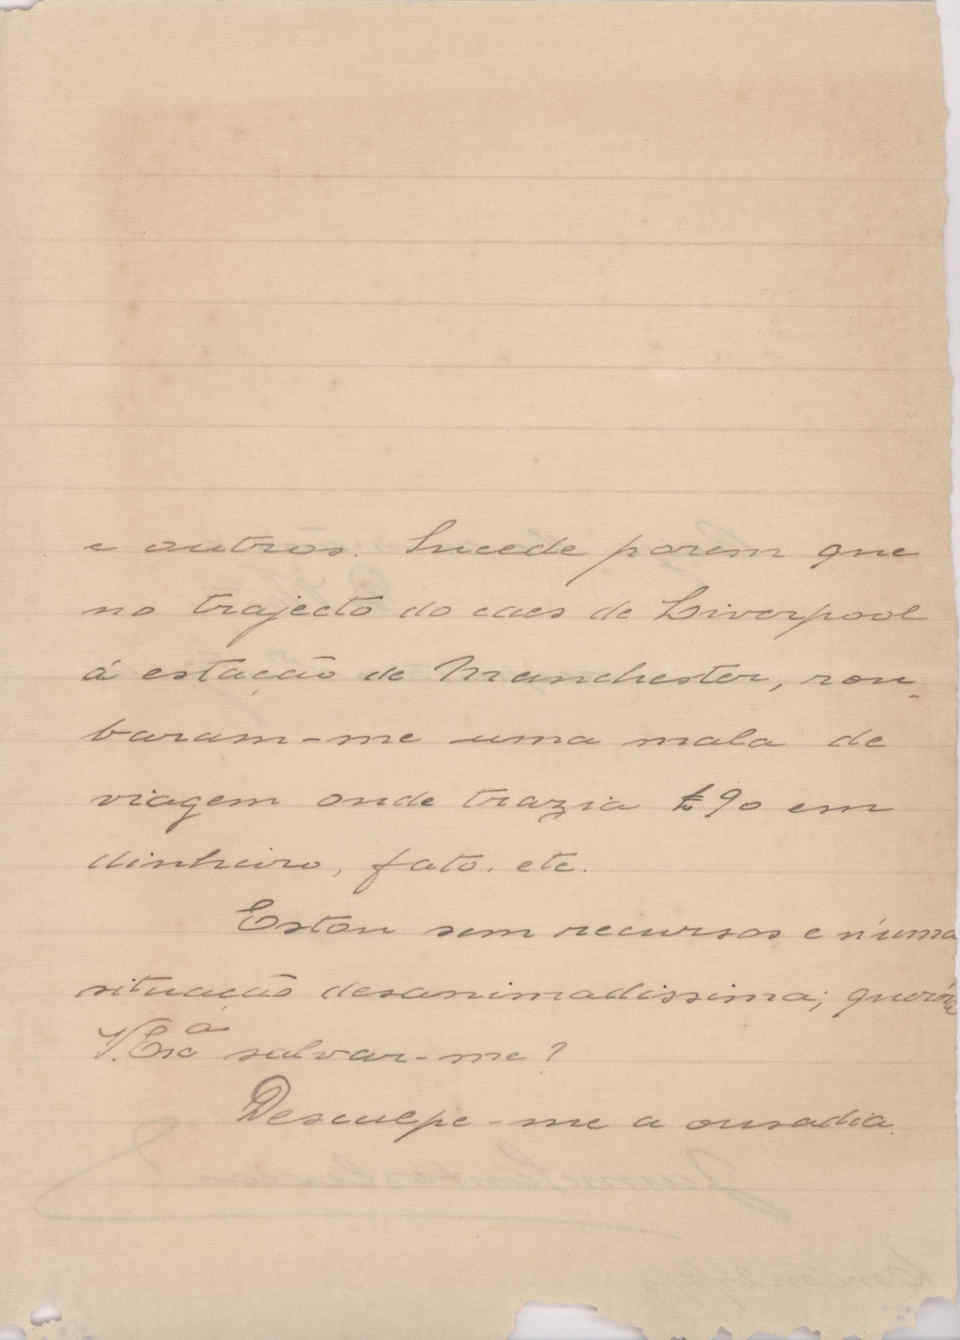 e outros. Sucede porem que
no trajecto do caes de Liverpool
á estação de Manchester, rou-
baram-me uma mala de
viagem onde trazia £90 em
dinheiro, fato. etc.
Estou sem recursos e n'uma
situação desanimadissima; quererá
V. Excª salvar-me?
Desculpe-me a ousadia.